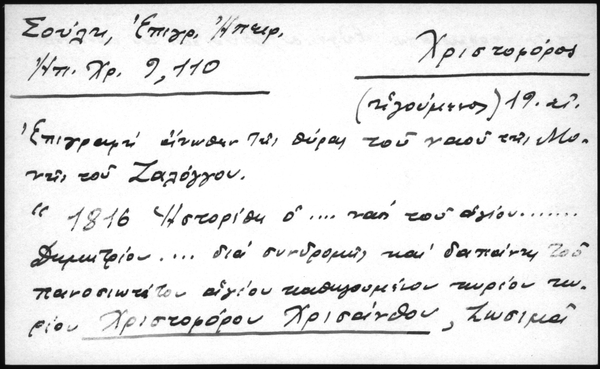 Σούλη, Ἐπιγρ. Ἠπείρ.
Ἠπ. Χρ. 9, 110
Χριστοφόρος
(ἡγούμενος) 19. αἰ.
Ἐπιγραφή ἄνωθεν τῆς θύρας τοῦ ναοῦ τῆς Μο-
νῆς τοῦ Ζαλόγγου.
“ 1816 Ἠστορίθη ὁ .... ναό τοῦ αγίου.......
Δημητρίου.... διά συνδρομῆς καί δαπάνης τοῦ
πανοσιωτάτου αγίου καθηγουμένου κυρίου κυ-
ρίου Χριστοφόρου Χρισάνθου, Ζωσιμᾶ